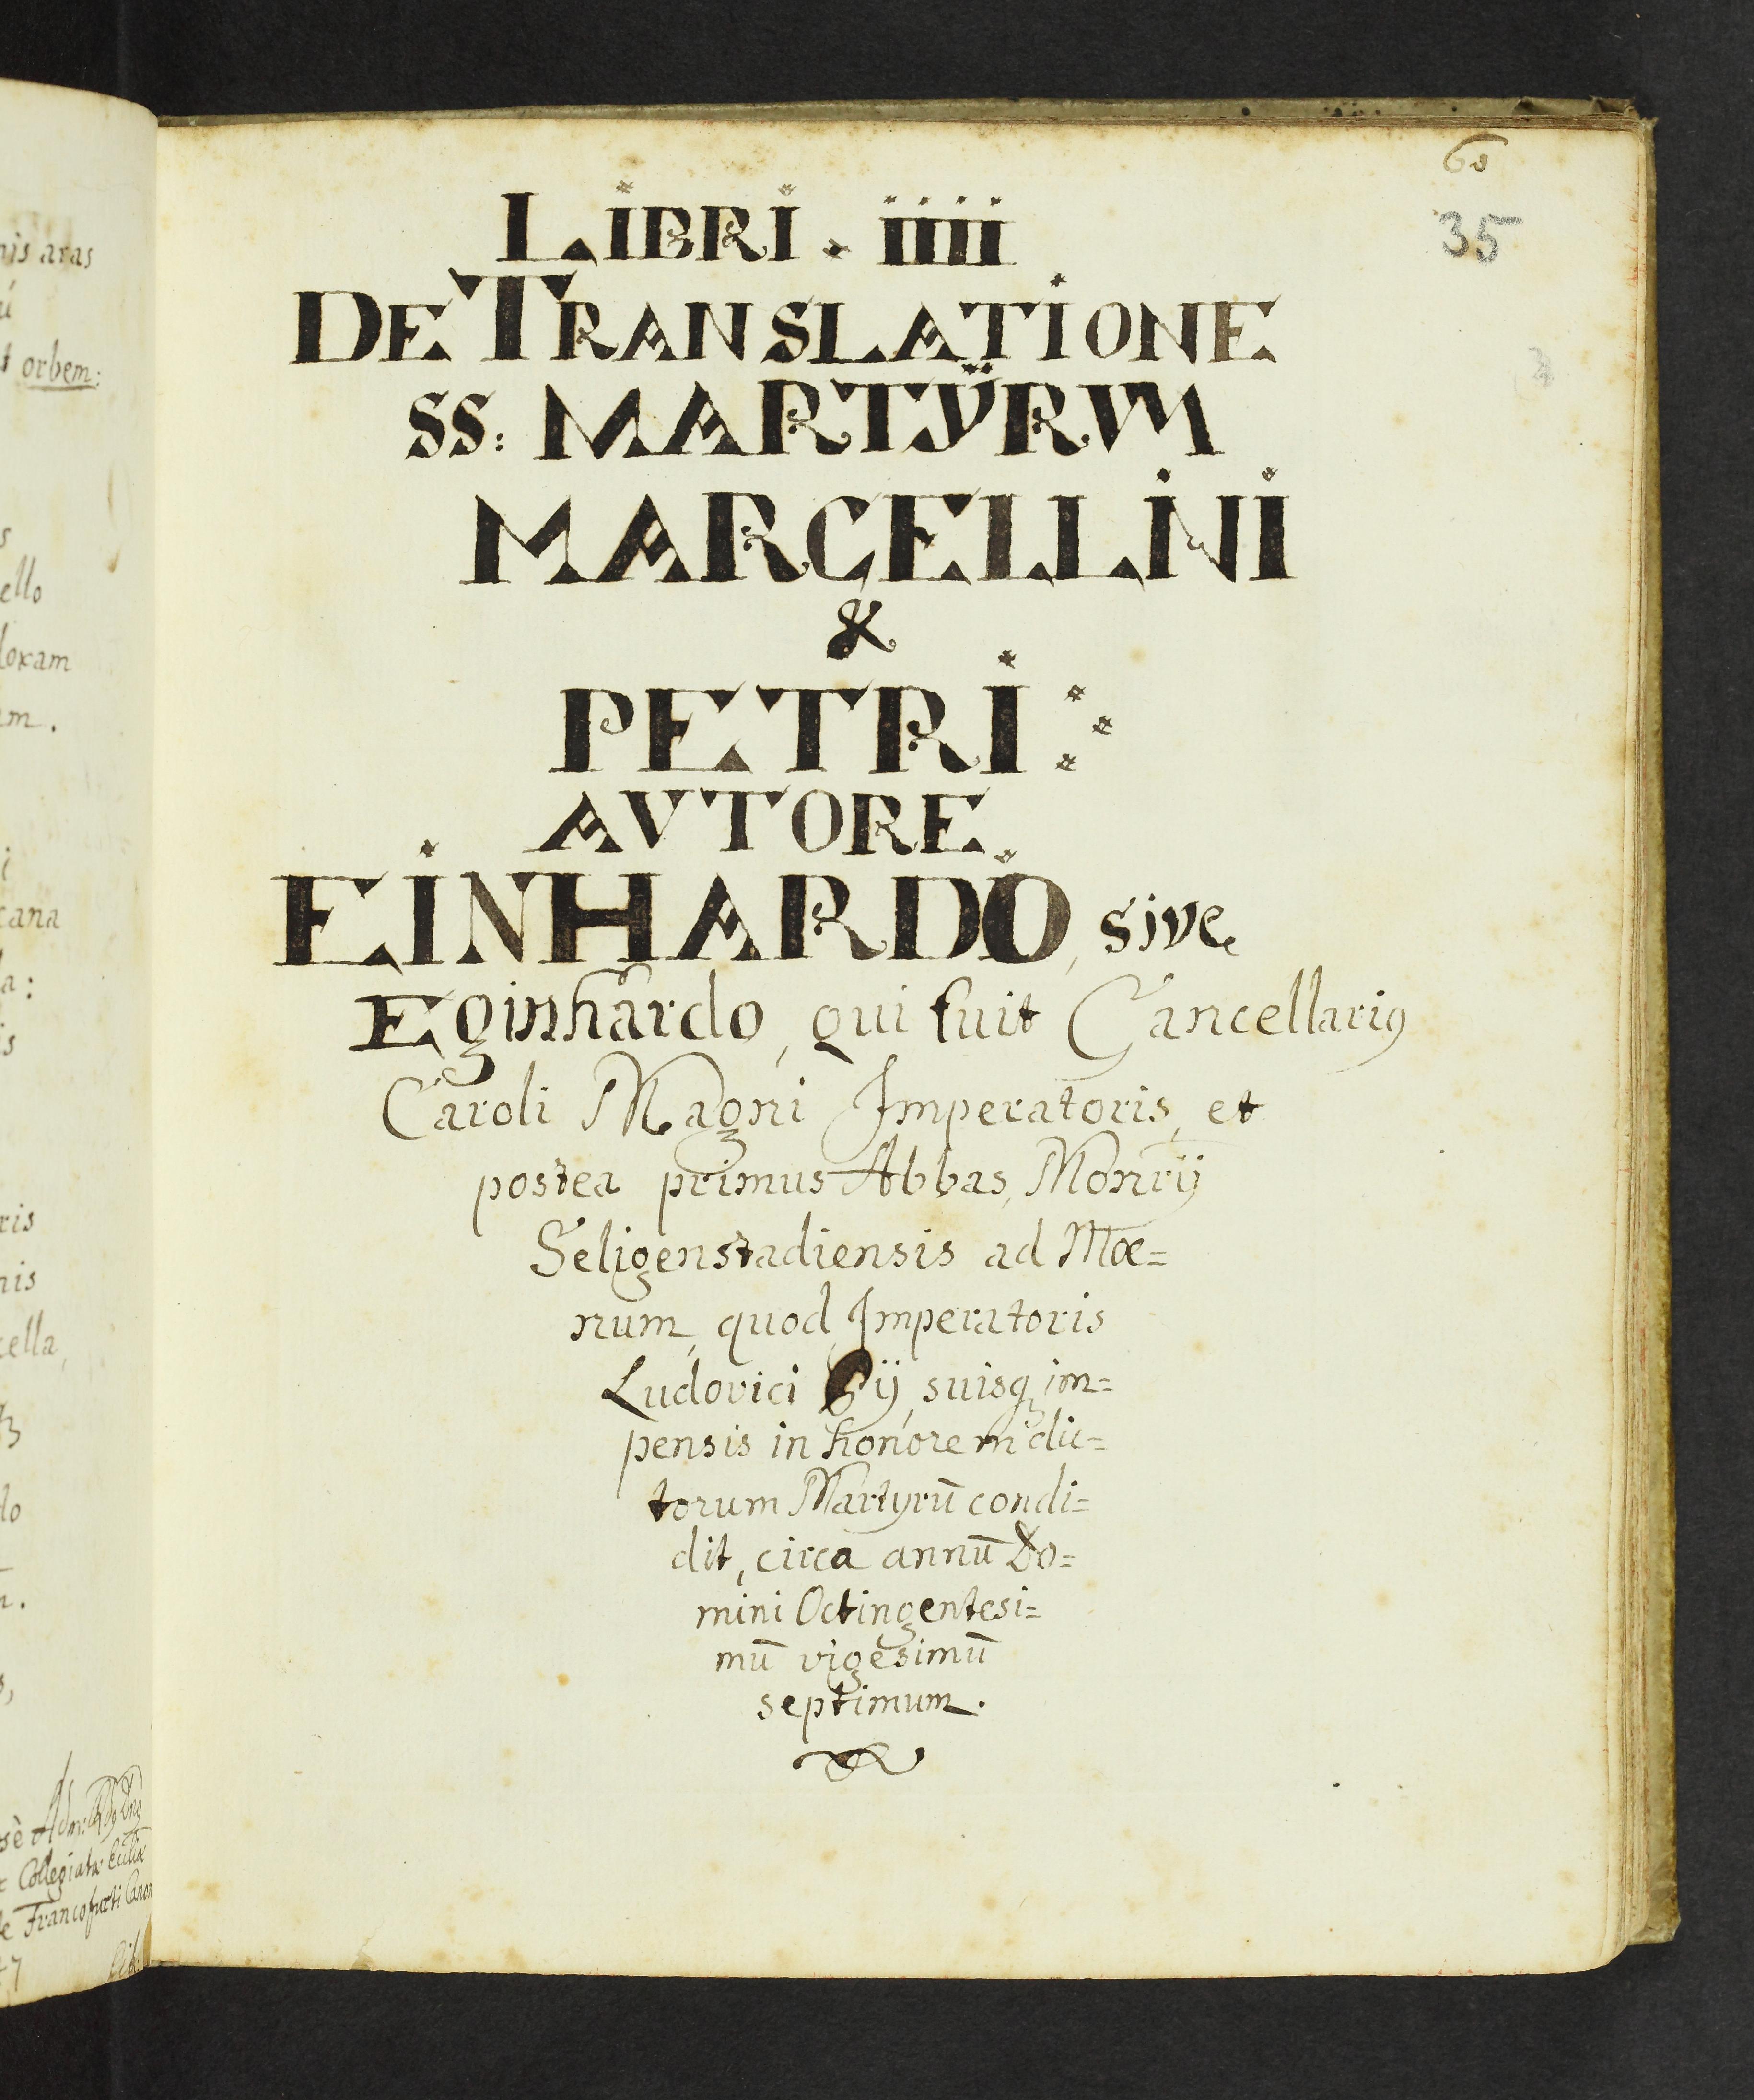 60
35
LiBRi . iiii
DE TRANSLATiONE
SS: MARTÿRVM
MARCELLiNi
&
PETRi
AVTORE
EiNHARDO, sive
Eginhardo, qui fuit Cancellariꝰ
Caroli Magni Imperatoris, et
postea primus Abbas, Monrÿ
Seligenstadiensis ad Mœ=
num, quod Imperatoris
Ludovici Pÿ, suisq́ im=
pensis in honorem dic=
torum Martyrū condi=
dit, circa annū Do=
mini Octingentesi=
mū vigesimū
septimum.
nis aras
orbem:
ello
loxam
cana
ris
nis
cella,
Collegiatæ
Francofurti Canon